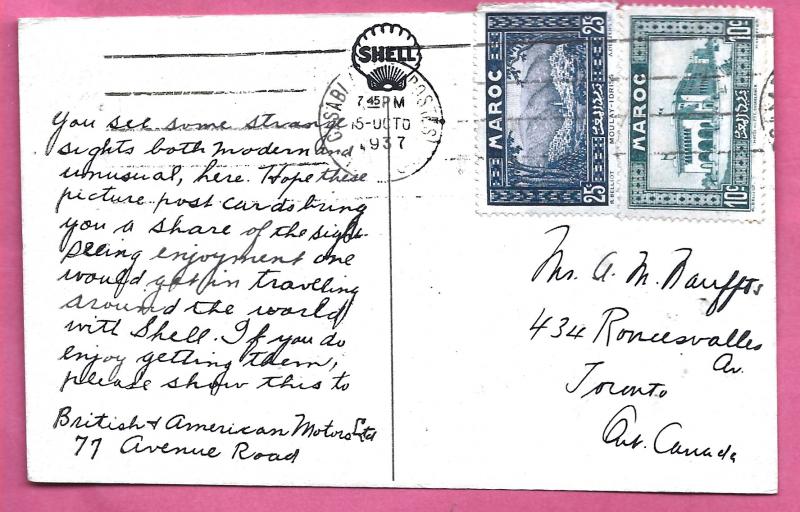 You see some strange
sights both modern and
unusual, here. Hope these
picture post cards bring
you a share of the sight-
seeing enjoyment one
would get in traveling
around the world
with Shell. If you do
enjoy getting them,
please show this to
British & American Motors Ltd
77 Avenue Road
SHELL
CASABL POSTES
7 45 PM
15-OCTO
1937
25c
MAROC
25c
MOULAY-IDRISS
10c
MAROC
10c
Mr. A. M.
434 Roncesvalles
Av.
Toronto
Ont. Canada